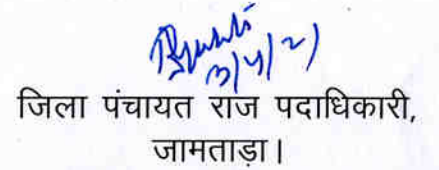 3/4/21
जिला पंचायत राज पदाधिकारी,
जामताड़ा।